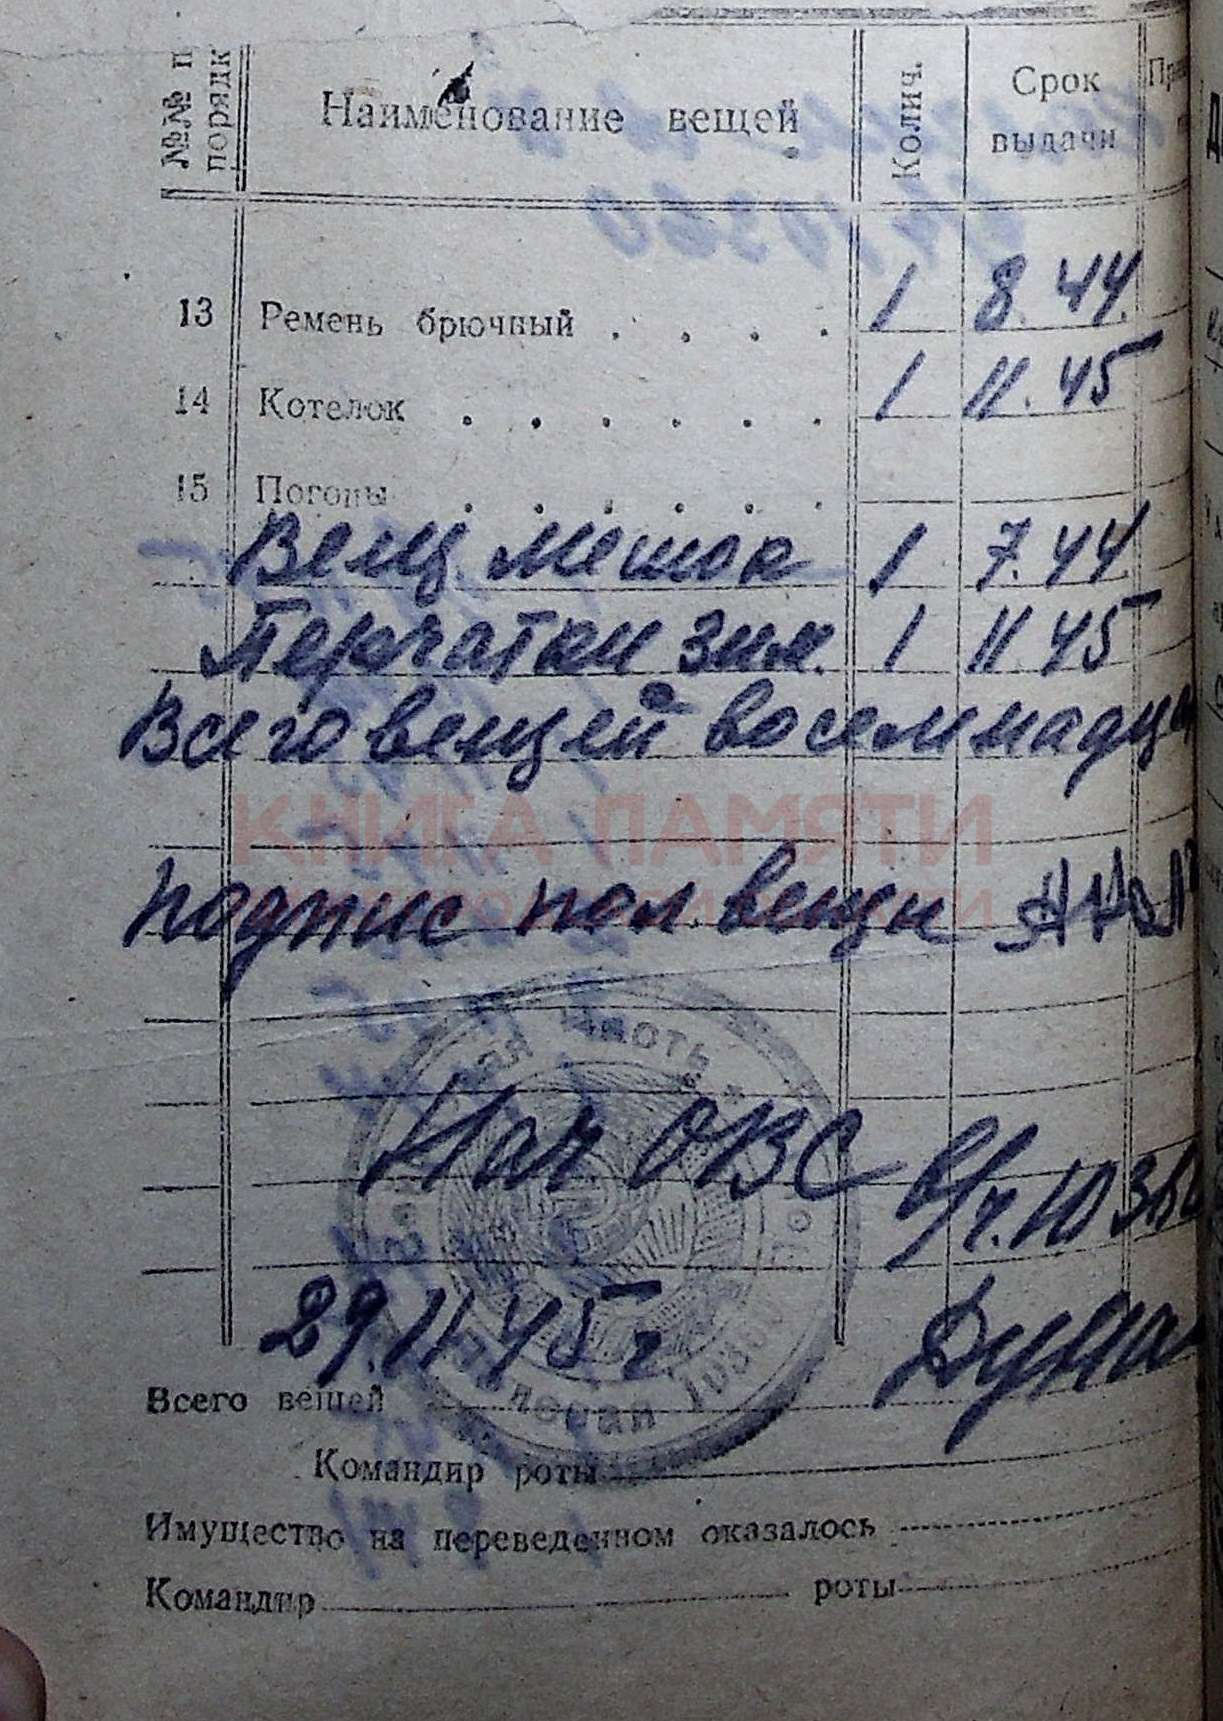 №№ п порядк Наименование вещей Колич. Срок выдачи
13 Ремень брючный . . . . 1 8.44.
14 Котелок . . . . . . 1 11.45
15 Погоны . . . . . .
Вещ. мешок 1 7.44.
Перчатки зим. 1 11.45
Всего вещей восемнадца
КНИГА ПАМЯТИ
подпис пол. вещи
часть
Нач ОВС в/ч. 10360
29.11.45 г
полевая 10360
Всего вещей
Командир роты
Имущество на переведенном оказалось
Командир роты